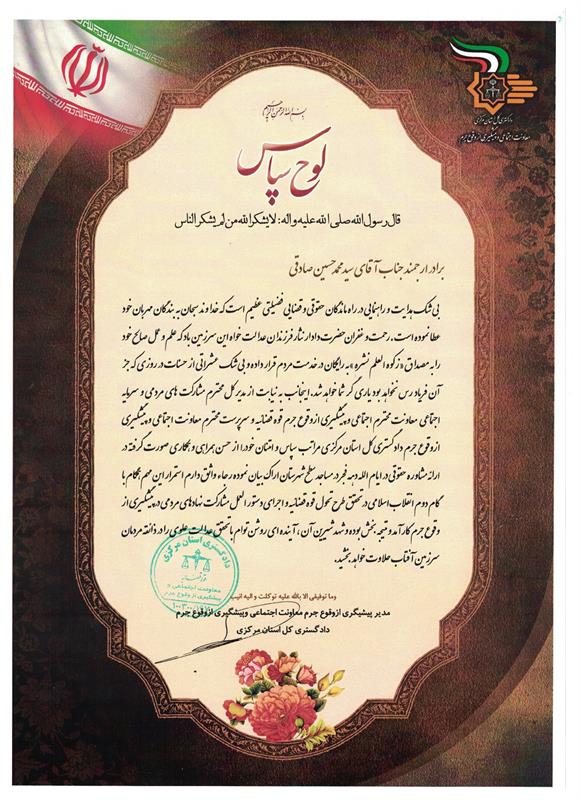 دادگستری کل استان مرکزی
معاونت اجتماعی و پیشگیری از وقوع جرم
بسم الله الرحمن الرحیم
لوح سپاس
قال رسول الله صلی الله علیه و اله: لا یشکر الله من لم یشکر الناس
برادر ارجمند جناب آقای سید محمد حسین صادقی
بی شک هدایت و راهنمایی در راه ماندگان حقوقی و قضایی فضیلتی عظیم است که خداوند سبحان به بندگان مهربان خود
عطا نموده است. رحمت و غفران حضرت دادار نثار فرزندان عدالت خواه این سرزمین باد که علم و عمل صالح خود
را به مصداق «زکوه العلم نشره» به رایگان در خدمت مردم قرار داده و بی شک عشراتی از حسنات در روزی که جز
آن فریاد رس نخواهد بود یاری گر شما خواهد شد. اینجانب به نیابت از مدیر کل محترم مشارکت های مردمی و سرمایه
اجتماعی معاونت محترم اجتماعی و پیشگیری از وقوع جرم قوه قضائیه و سرپرست محترم معاونت اجتماعی و پیشگیری
از وقوع جرم دادگستری کل استان مرکزی مراتب سپاس و امتنان خود را از حسن همراهی و همکاری صورت گرفته در
ارائه مشاوره حقوقی در ایام الله دهه فجر در مساجد سطح شهرستان اراک بیان نموده رجاء واثق دارم استمرار این مهم همگام با
گام دوم انقلاب اسلامی در تحقق طرح تحول قوه قضائیه و اجرای دستور العمل مشارکت نهادهای مردمی در پیشگیری از
وقوع جرم کارآمد و نتیجه بخش بوده و شهد شیرین آن، آینده ای روشن توام با تحقق عدالت علوی را در ذائقه مردمان
سرزمین آفتاب حلاوت خواهد بخشید.
وما توفیقی الا بالله علیه توکلت و الیه انیب
مدیر پیشگیری از وقوع جرم معاونت اجتماعی و پیشگیری از وقوع جرم
دادگستری کل استان مرکزی
دادگستری استان مرکزی
قوه قضائیه
معاونت اجتماعی و
پیشگیری از وقوع جرم